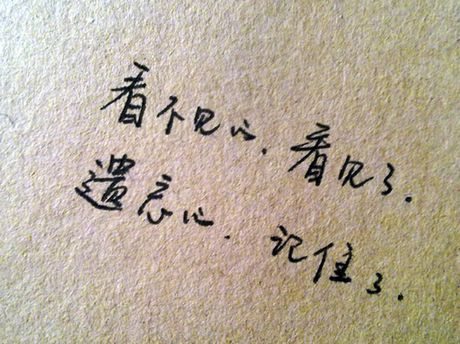 看不见的,看见了.
遗忘的.记住了.